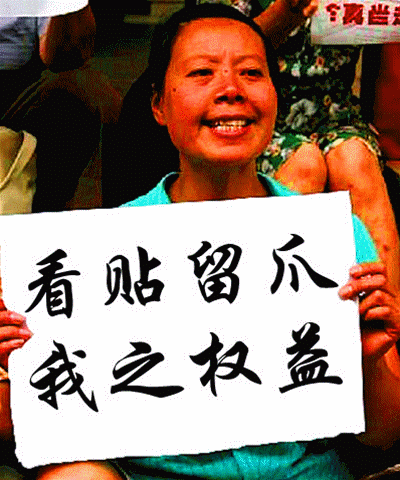 看贴留爪
我之权益